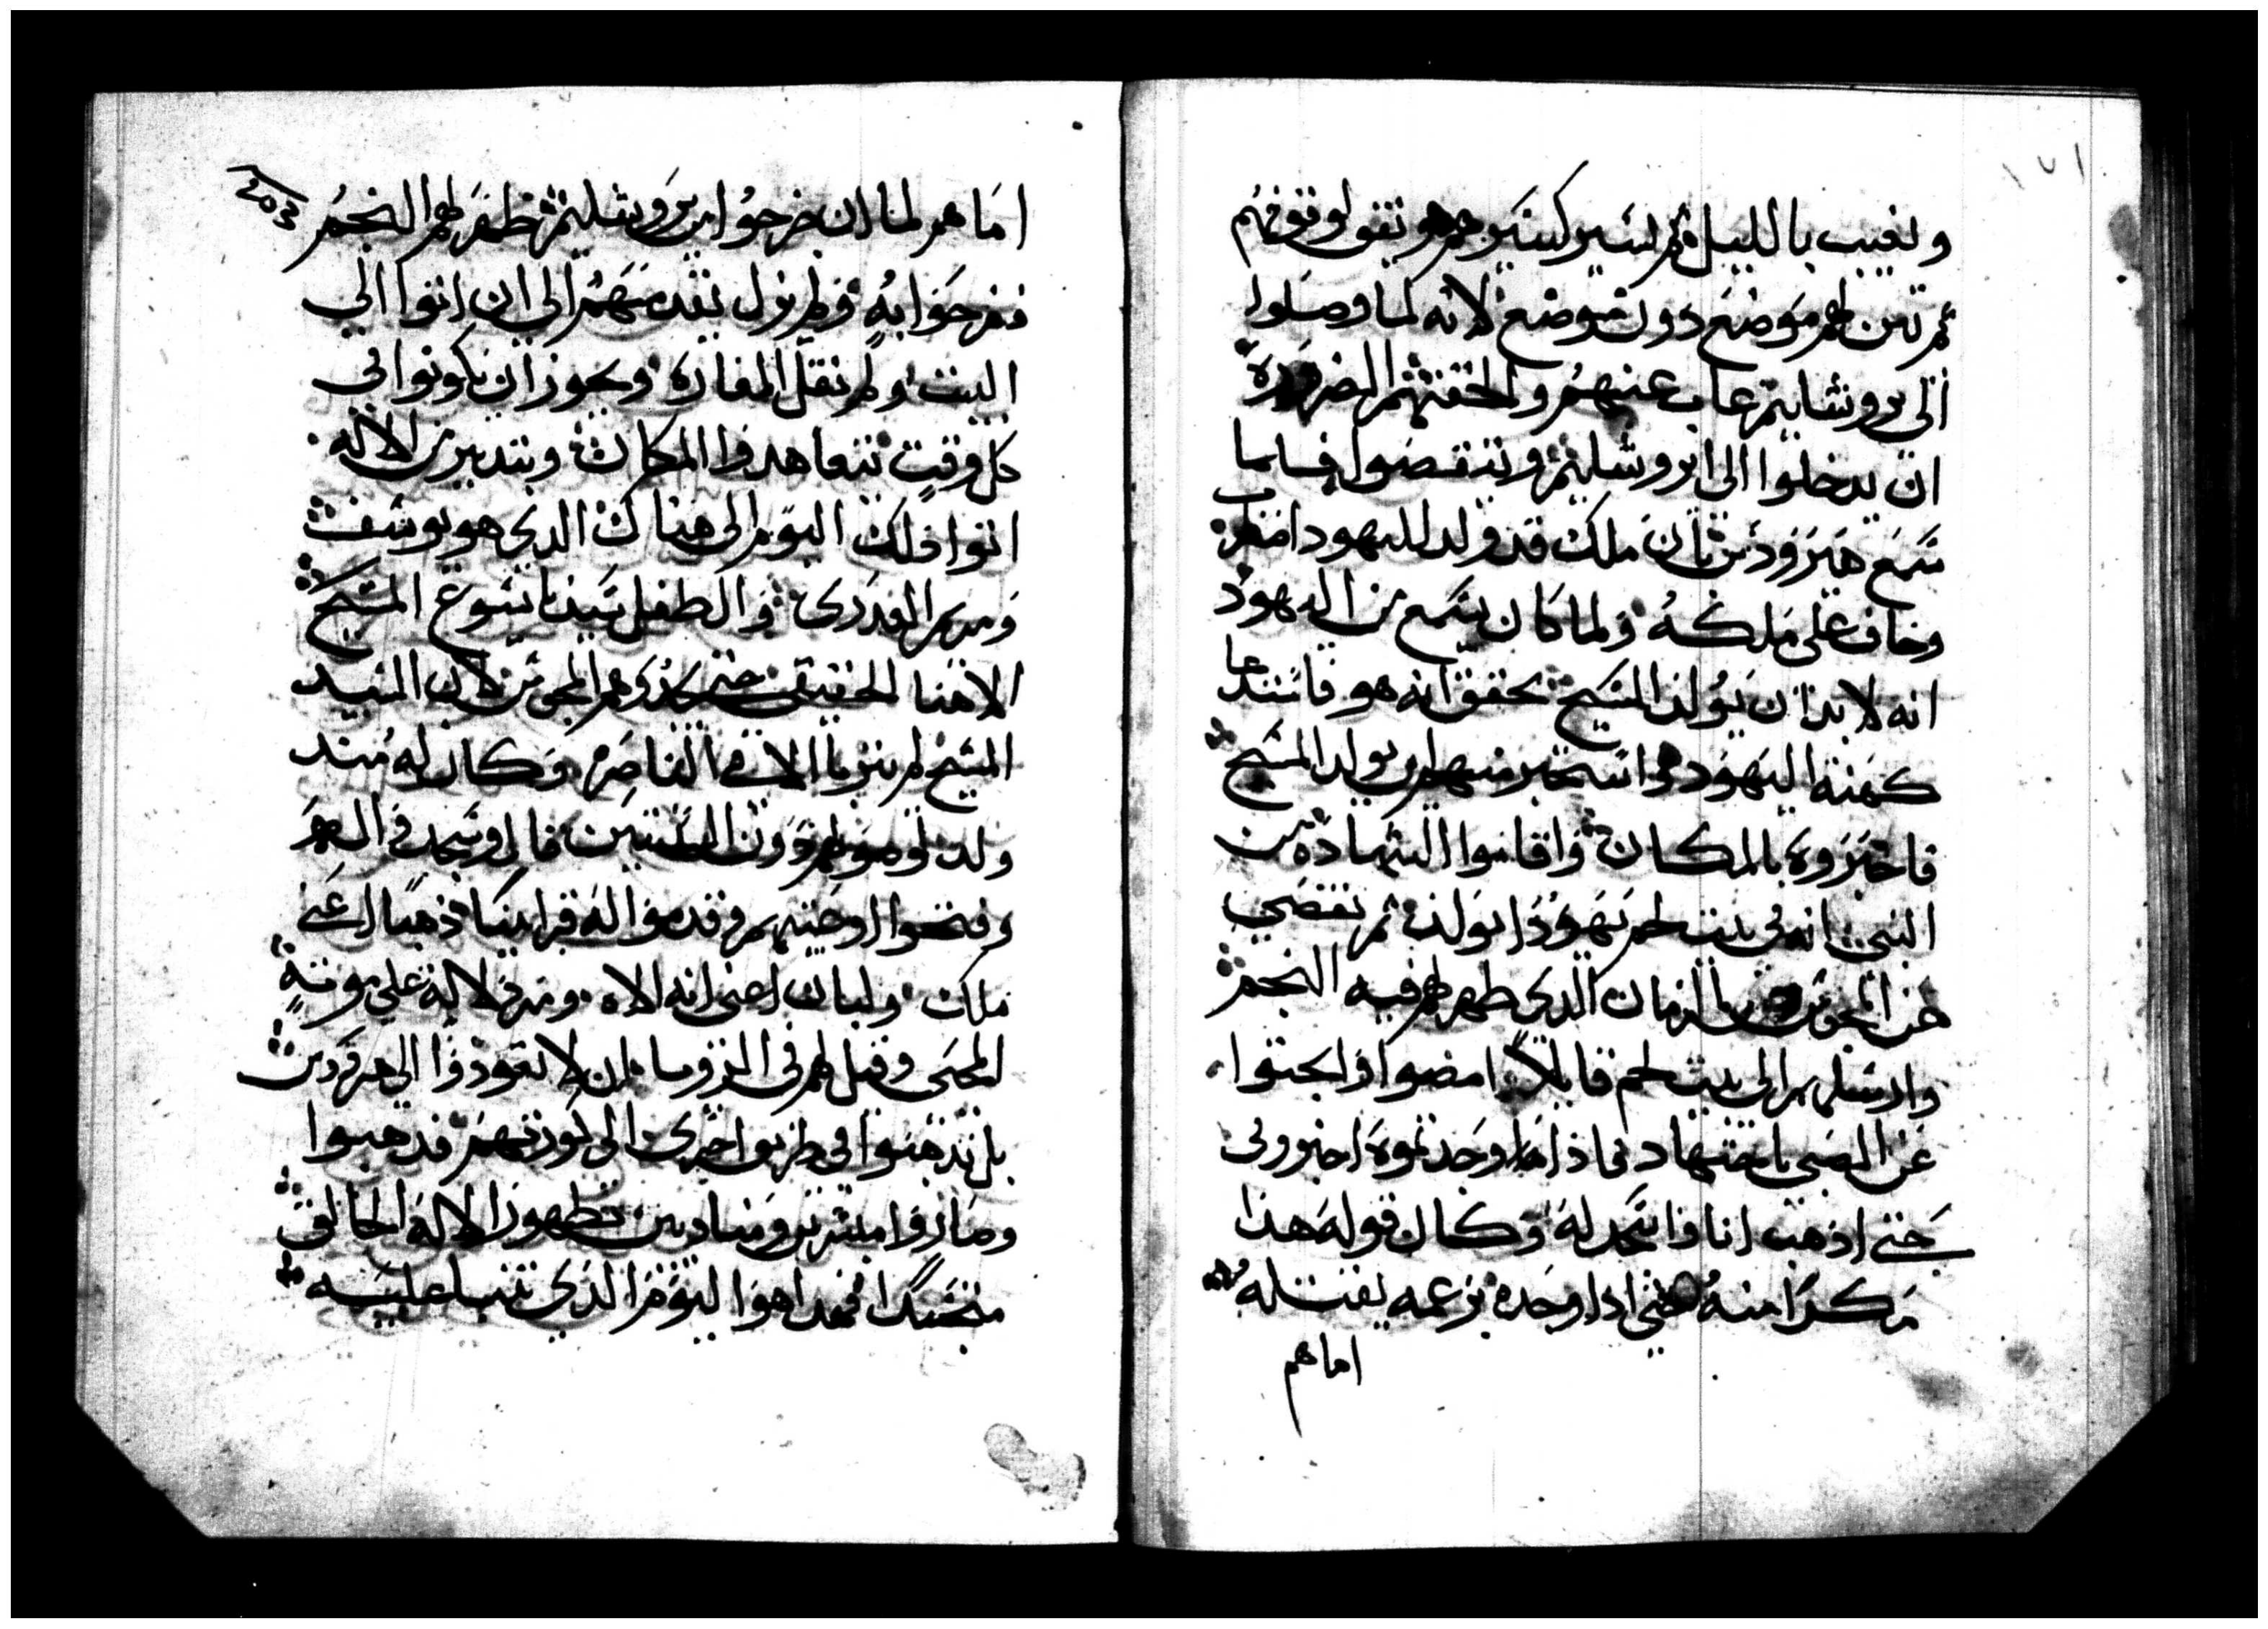 ١٧١
وتغيب بالليل ثم تسير كسيرهم وتقف لوقوفهم
ثم تبين لهم موضع دون موضع لانه لما وصلوا
الى يروشليم غاب عنهم والحقتهم الضرورة
ان يدخلوا الى ايروشليم ويتقصوا فلما
سمع هيرودس بان ملك قد ولد لليهود اضطرب
وخاف على ملكه ولما كان يسمع من اليهود
انه لا بد ان يولد المسيح تحقق انه هو فاستدعا
كهنة اليهود واستخبر منهم اين يولد المسيح
فاخبروه بالمكان واقاموا الشهادة من
النبي انه في بيت لحم يهودا يولد ثم تقصى
عن المجوس الزمان الدي ظهر لهم فيه النجم
وارسلهم الى بيت لحم قايلا امضوا وابحثوا
عن الصبي باجتهاد فاذا وجدتموه اخبروني
حتى اذهب انا واسجد له وكان قوله هذا
مكرا منه حتى ادا وجده بزعمه يقتله
اماهم
203
اما هم لما ان خرجوا من يروشليم ظهر لهم النجم
ففرحوا به ولم يزل يتقدمهم الى ان اتوا الى
البيت ولم نقل المغارة ويجوز ان يكونوا في
كل وقت يتعاهدوا المكان وبتدبير من الاله
اتوا ذلك اليوم الى هناك الدي هو يوسف
ومريم العدرى والطفل سيدنا يسوع المسيح
الاهنا الحقيقي حتى يدركوهم المجوس لان السيد
المسيح لم يتربا الا في الناصرة وكان له مند
ولد لو دون السنتين قال وسجدوا له
وفتحوا اوعيتهم وقدموا له قرابينا ذهبا اعني
ملك ولبان اعنى انه الاه ومر دلالة على موته
المحيى وقيل لهم في الرويا ان لا تعودوا الى هيرودس
بل تذهبوا في طريق اخرى الى كورتهم فدهبوا
وصاروا مبشرين ومنادين بظهور الاله الخالق
متجسدا فهدا هو اليوم الذي تنبا عليه